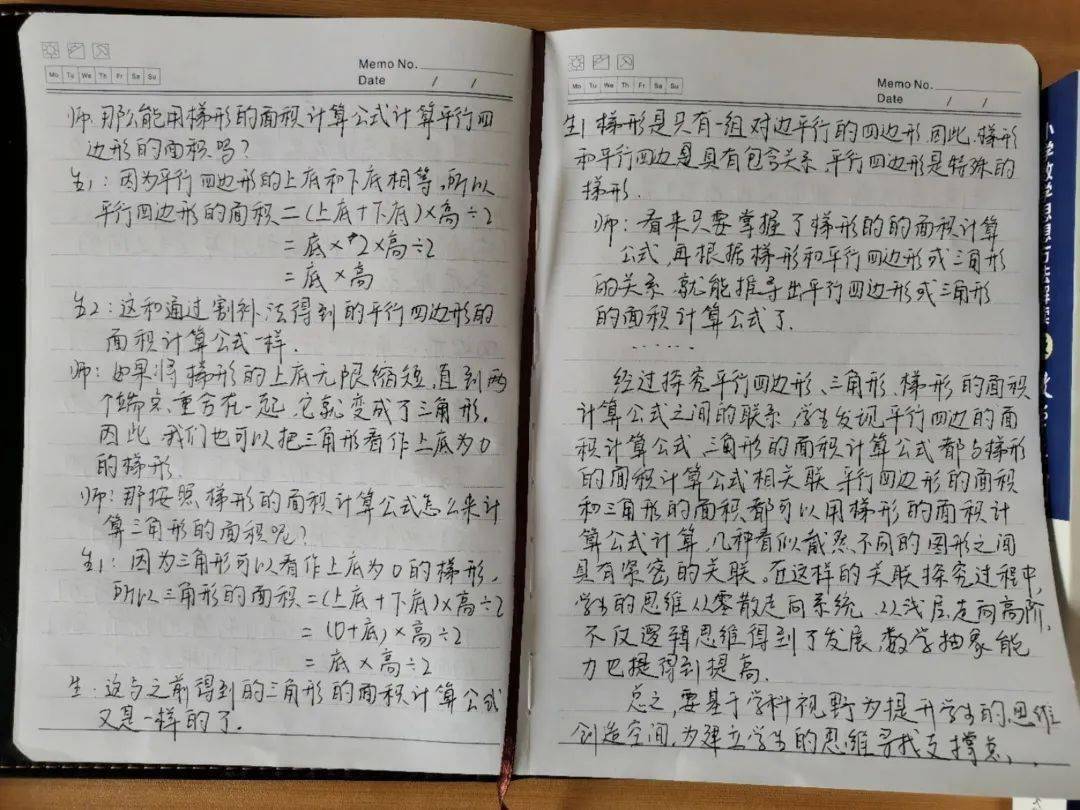 Memo No.
Mo Tu We Th Fr Sa Su
Date / /
师：那么能用梯形的面积计算公式计算平行四
边形的面积吗？
生1：因为平行四边形的上底和下底相等，所以
平行四边形的面积＝(上底＋下底)×高÷2
＝底×2×高÷2
＝底×高
生2：这和通过割补法得到的平行四边形的
面积计算公式一样．
师：如果将梯形的上底无限缩短，直到两
个端点重合在一起，它就变成了三角形．
因此，我们也可以把三角形看作上底为0
的梯形．
师：那按照梯形的面积计算公式怎么来计
算三角形的面积呢？
生1：因为三角形可以看作上底为0的梯形，
所以三角形的面积＝(上底＋下底)×高÷2
＝(0＋底)×高÷2
＝底×高÷2
生：这与之前得到的三角形的面积计算公式
又是一样的了．
Memo No.
Mo Tu We Th Fr Sa Su
Date / /
生1 梯形是只有一组对边平行的四边形，因此，梯形
和平行四边是具有包含关系，平行四边形是特殊的
梯形．
师：看来只要掌握了梯形的的面积计算
公式，再根据梯形和平行四边形或三角形
的关系，就能推导出平行四边形或三角形
的面积计算公式了．
......
经过探究平行四边形、三角形、梯形的面积
计算公式之间的联系，学生发现平行四边的面
积计算公式、三角形的面积计算公式都与梯形
的面积计算公式相关联，平行四边形的面积
和三角形的面积都可以用梯形的面积计
算公式计算，几种看似截然不同的图形之间
具有深密的关联。在这样的关联探究过程中，
学生的思维从零散走向系统，从浅层走向高阶，
不仅逻辑思维得到了发展，数学抽象能
力也提得到提高．
总之，要基于学科视野为提升学生的思维
创造空间，为建立学生的思维寻找支撑点，
小学数学思想方法解读